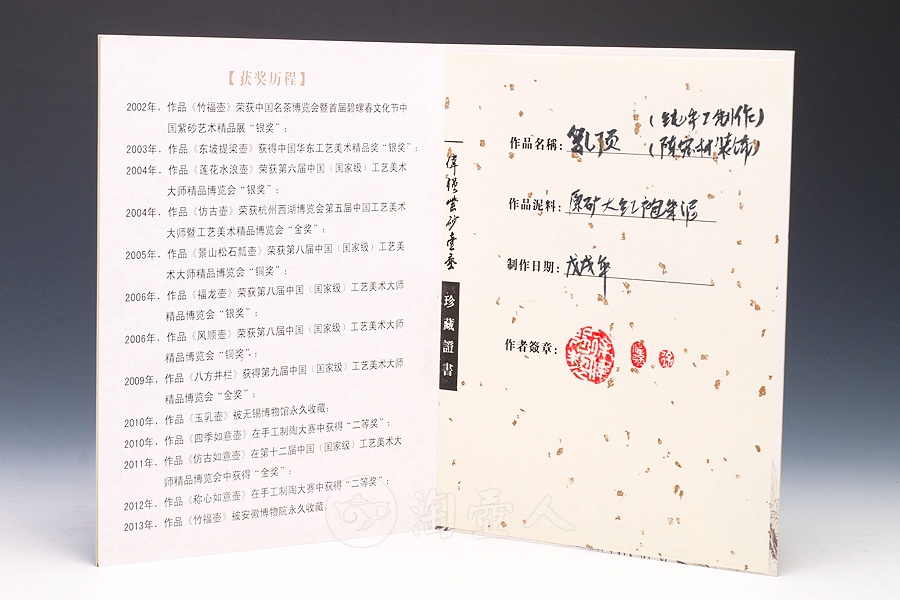 【获奖历程】
2002年，作品《竹福壶》荣获中国名茶博览会暨首届碧螺春文化节中
国紫砂艺术精品展“银奖”；
2003年，作品《东坡提梁壶》获得中国华东工艺美术精品奖“银奖”；
2004年，作品《莲花水浪壶》荣获第六届中国（国家级）工艺美术
大师精品博览会“银奖”；
2004年，作品《仿古壶》荣获杭州西湖博览会第五届中国工艺美术
大师暨工艺美术精品博览会“金奖”；
2005年，作品《景山松石瓢壶》荣获第八届中国（国家级）工艺美
术大师精品博览会“铜奖”；
2006年，作品《福龙壶》荣获第八届中国（国家级）工艺美术大师
精品博览会“银奖”；
2006年，作品《风顺壶》荣获第八届中国（国家级）工艺美术大师
精品博览会“铜奖”；
2009年，作品《八方井栏》获得第九届中国（国家级）工艺美术大师
精品博览会“金奖”；
2010年，作品《玉乳壶》被无锡博物馆永久收藏；
2010年，作品《四季如意壶》在手工制陶大赛中获得“二等奖”；
2011年，作品《仿古如意壶》在第十二届中国（国家级）工艺美术大
师精品博览会中获得“金奖”；
2012年，作品《称心如意壶》在手工制陶大赛中获得“二等奖”；
2013年，作品《竹福壶》被安徽博物院永久收藏
珍藏證書
（纯手工制作）
作品名稱：乳顶（陈宏林装饰）
作品泥料：原矿大红陶朱泥
制作日期：戊戌年
作者簽章：
淘壶人